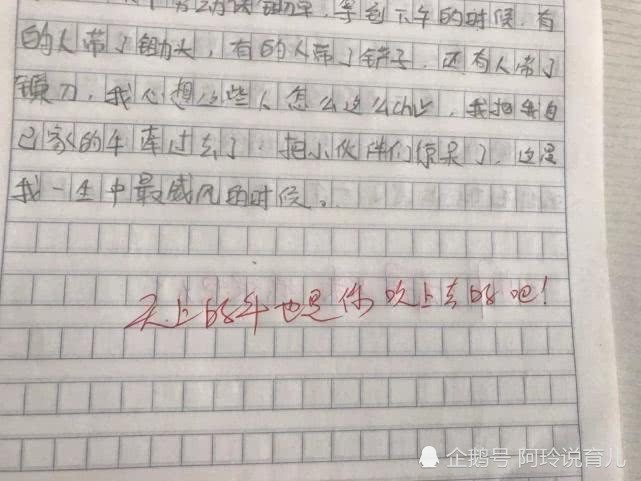 等到下午的时候,有
的人带了锄头,有的人带了铲子,还有人带了
镰刀,我心想这些人怎么这么,我把我自
己家的牛牵过去了,把小伙伴们惊呆了,这是
我一生中最威风的时候。
天上的牛也是你吹上去的吧!
企鹅号 阿玲说育儿